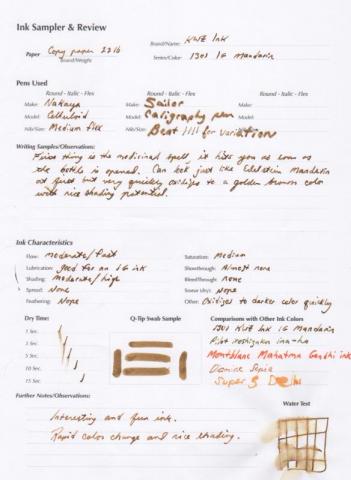 Ink Sampler & Review
Brand/Name: KWZ Ink
Paper Copy paper 22 lb
Brand/Weight
Series/Color: 1341 IG Mandarin
Pens Used
Round - Italic - Flex Round - Italic - Flex Round - Italic - Flex
Make: Nakaya Make: Sailor Make:
Model: Celluloid Model: Caligraphy pen Model:
Nib/Size: Medium flex Nib/Size: Bent //// for variation Nib/Size:
Writing Samples/Observations:
First thing is the medicinal smell, it hits you as soon as
the bottle is opened. Can look just like Edelstein Mandarin
at first but very quickly oxidizes to a golden brown color
with nice shading potential.
Ink Characteristics
Flow: moderate/fast Saturation: Medium
Lubrication: good for an IG ink Showthrough: Almost none
Shading: moderate/high Bleedthrough: none
Spread: None Smear (dry): Nope
Feathering: Nope Other: Oxidizes to darker color quickly
Dry Time: Q-Tip Swab Sample Comparisons with Other Ink Colors
1 Sec. 1341 KWZ Ink IG Mandarin
3 Sec. Pilot Iroshizuku ina-ho
5 Sec. Montblanc Mahatma Gandhi ink
10 Sec. Domine Sepia
15 Sec. Super 5 Delhi
Further Notes/Observations: Water Test
Interesting and fun ink.
Rapid color change and nice shading.